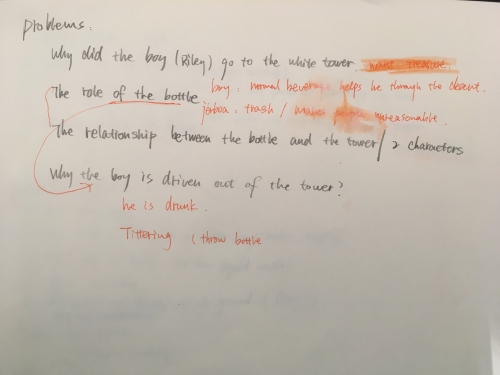 problems:
Why did the boy (Riley) go to the white tower. want treasure.
The role of the bottle boy: normal beverage helps he through the desert.
jerboa: trash / makes people unreasonable.
The relationship between the bottle and the tower / 2 characters
Why the boy is driven out of the tower?
he is drunk.
Tittering (throw bottle